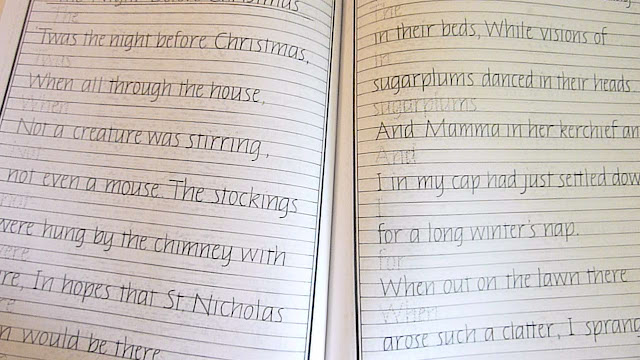 The Night Before Christmas
The
'Twas the night before Christmas,
Twas
When all through the house,
When
Not a creature was stirring,
Not
not even a mouse. The stockings
not
were hung by the chimney with
were
re, In hopes that St. Nicholas
re
n would be there
The
in their beds, While visions of
in
sugarplums danced in their heads
sugarplums
And Mamma in her kerchief an
And
I in my cap had just settled dow
I
for a long winter's nap.
for
When out on the lawn there
When
arose such a clatter, I sprang